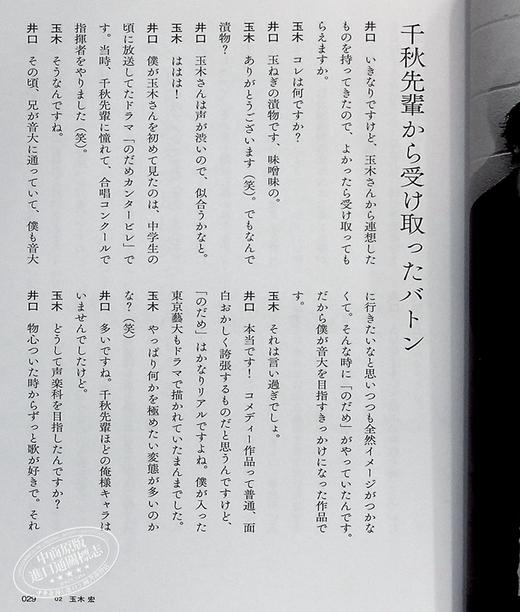 千秋先輩から受け取ったバトン
井口　いきなりですけど、玉木さんから連想した
ものを持ってきたので、よかったら受け取っても
らえますか。
玉木　コレは何ですか？
井口　玉ねぎの漬物です、味噌味の。
玉木　ありがとうございます（笑）。でもなんで
漬物？
井口　玉木さんは声が渋いので、似合うかなと。
玉木　ははは！
井口　僕が玉木さんを初めて見たのは、中学生の
頃に放送してたドラマ「のだめカンタービレ」で
す。当時、千秋先輩に憧れて、合唱コンクールで
指揮者をやりました（笑）。
玉木　そうなんですね。
井口　その頃、兄が音大に通っていて、僕も音大
に行きたいなと思いつつも全然イメージがつかな
くて。そんな時に「のだめ」がやっていたんです。
だから僕が音大を目指すきっかけになった作品で
す。
玉木　それは言い過ぎでしょ。
井口　本当です！　コメディー作品って普通、面
白おかしく誇張するものだと思うんですけど、
「のだめ」はかなりリアルですよね。僕が入った
東京藝大もドラマで描かれていたまんまでした。
玉木　やっぱり何かを極めたい変態が多いのか
な？（笑）
井口　多いですね。千秋先輩ほどの俺様キャラは
いませんでしたけど。
玉木　どうして声楽科を目指したんですか？
井口　物心ついた時からずっと歌が好きで。それ
029　02　玉木 宏
中商原版
进口正版图书标志